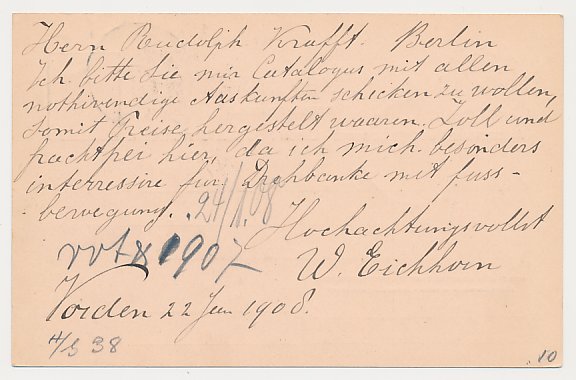 Herrn Rudolph Krafft. Berlin
Ich bitte Sie mir Catalogus mit allen
nothwendige Auskunften schicken zu wollen,
somit Preise, hergestelt waaren. Zoll und
frachtfrei hier, da ich mich besonders
interressire für Drehbanke mit fuss-
bewegung.
24/1.08
Hochachtungsvollst
1907
W. Eichhorn
Vorden 22 Jan 1908.
38
10